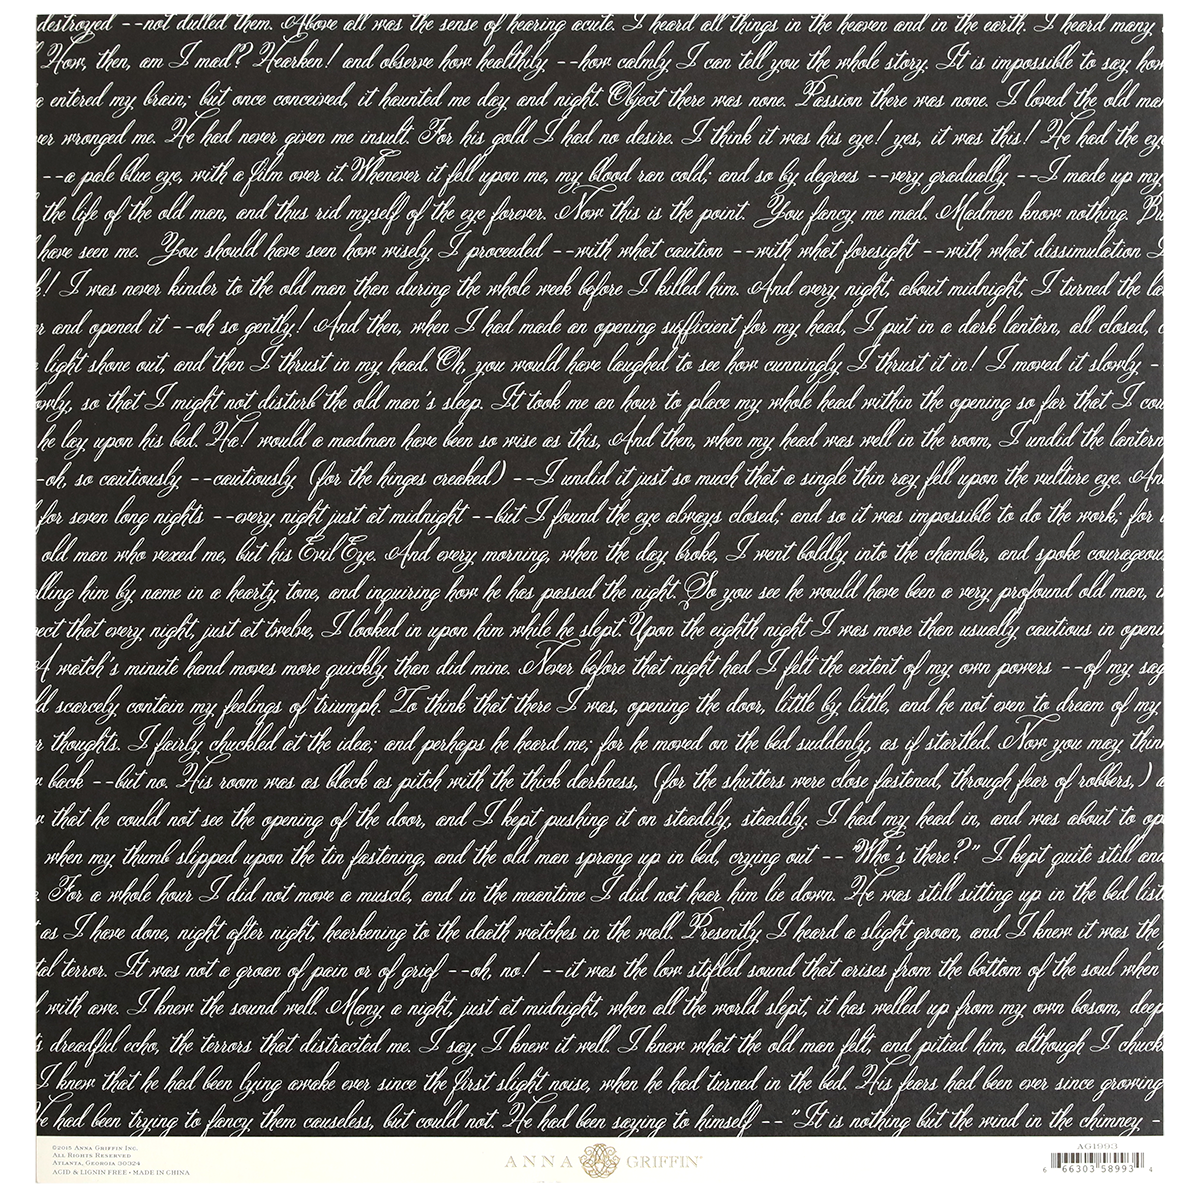 destroyed --not dulled them. Above all was the sense of hearing acute. I heard all things in the heaven and in the earth. I heard many
How, then, am I mad? Hearken! and observe how healthily --how calmly I can tell you the whole story. It is impossible to say how
entered my brain; but once conceived, it haunted me day and night. Object there was none. Passion there was none. I loved the old man
er wronged me. He had never given me insult. For his gold I had no desire. I think it was his eye! yes, it was this! He had the eye
--a pale blue eye, with a film over it. Whenever it fell upon me, my blood ran cold; and so by degrees --very gradually --I made up my
the life of the old man, and thus rid myself of the eye forever. Now this is the point. You fancy me mad. Madmen know nothing. Bu
have seen me. You should have seen how wisely I proceeded --with what caution --with what foresight --with what dissimulation I
! I was never kinder to the old man than during the whole week before I killed him. And every night, about midnight, I turned the la
r and opened it --oh so gently! And then, when I had made an opening sufficient for my head, I put in a dark lantern, all closed,
light shone out, and then I thrust in my head. Oh, you would have laughed to see how cunningly I thrust it in! I moved it slowly -
owly, so that I might not disturb the old man's sleep. It took me an hour to place my whole head within the opening so far that I cou
he lay upon his bed. Ha! would a madman have been so wise as this, And then, when my head was well in the room, I undid the lantern
-oh, so cautiously --cautiously (for the hinges creaked) --I undid it just so much that a single thin ray fell upon the vulture eye. An
for seven long nights --every night just at midnight --but I found the eye always closed; and so it was impossible to do the work; for
old man who vexed me, but his Evil Eye. And every morning, when the day broke, I went boldly into the chamber, and spoke courageou
lling him by name in a hearty tone, and inquiring how he has passed the night. So you see he would have been a very profound old man,
pect that every night, just at twelve, I looked in upon him while he slept. Upon the eighth night I was more than usually cautious in openi
A watch's minute hand moves more quickly than did mine. Never before that night had I felt the extent of my own powers --of my sag
ld scarcely contain my feelings of triumph. To think that there I was, opening the door, little by little, and he not even to dream of my
r thoughts. I fairly chuckled at the idea; and perhaps he heard me; for he moved on the bed suddenly, as if startled. Now you may thin
back --but no. His room was as black as pitch with the thick darkness, (for the shutters were close fastened, through fear of robbers,)
that he could not see the opening of the door, and I kept pushing it on steadily, steadily. I had my head in, and was about to op
when my thumb slipped upon the tin fastening, and the old man sprang up in bed, crying out -- "Who's there?" I kept quite still and
. For a whole hour I did not move a muscle, and in the meantime I did not hear him lie down. He was still sitting up in the bed list
as I have done, night after night, hearkening to the death watches in the wall. Presently I heard a slight groan, and I knew it was the
tal terror. It was not a groan of pain or of grief --oh, no! --it was the low stifled sound that arises from the bottom of the soul when
with awe. I knew the sound well. Many a night, just at midnight, when all the world slept, it has welled up from my own bosom, deep
s dreadful echo, the terrors that distracted me. I say I knew it well. I knew what the old man felt, and pitied him, although I chuck
I knew that he had been lying awake ever since the first slight noise, when he had turned in the bed. His fears had been ever since growing
He had been trying to fancy them causeless, but could not. He had been saying to himself -- "It is nothing but the wind in the chimney -
©2015 Anna Griffin Inc.
All Rights Reserved
Atlanta, Georgia 30324
ACID & LIGNIN FREE • MADE IN CHINA
ANNA GRIFFIN®
AG1993
6 66303 58993 4